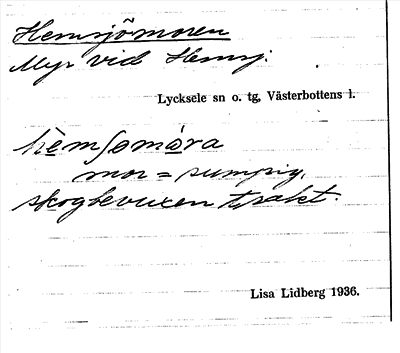 Hemsjömoren
Myr vid Hemsj.
Lycksele sn o. tg, Västerbottens l.
hèmʃømåra
mor = sumpig,
skogbevuxen trakt.
Lisa Lidberg 1936.